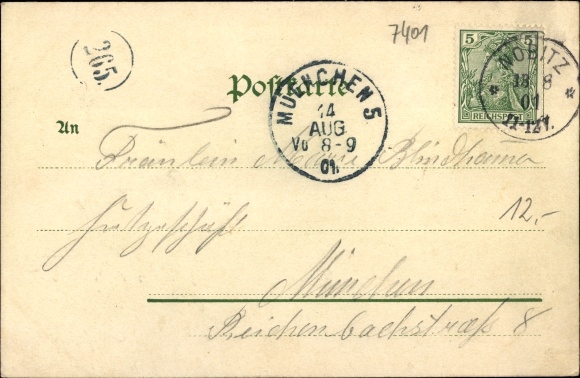 7401
265
5 5
REICHSPOST
MORITZ
13 8
01
11-12V.
Postkarte
MUENCHEN 5
14
AUG
Vo 8-9
01.
An
Fräulein
12,-
München
Reichenbachstraße 8